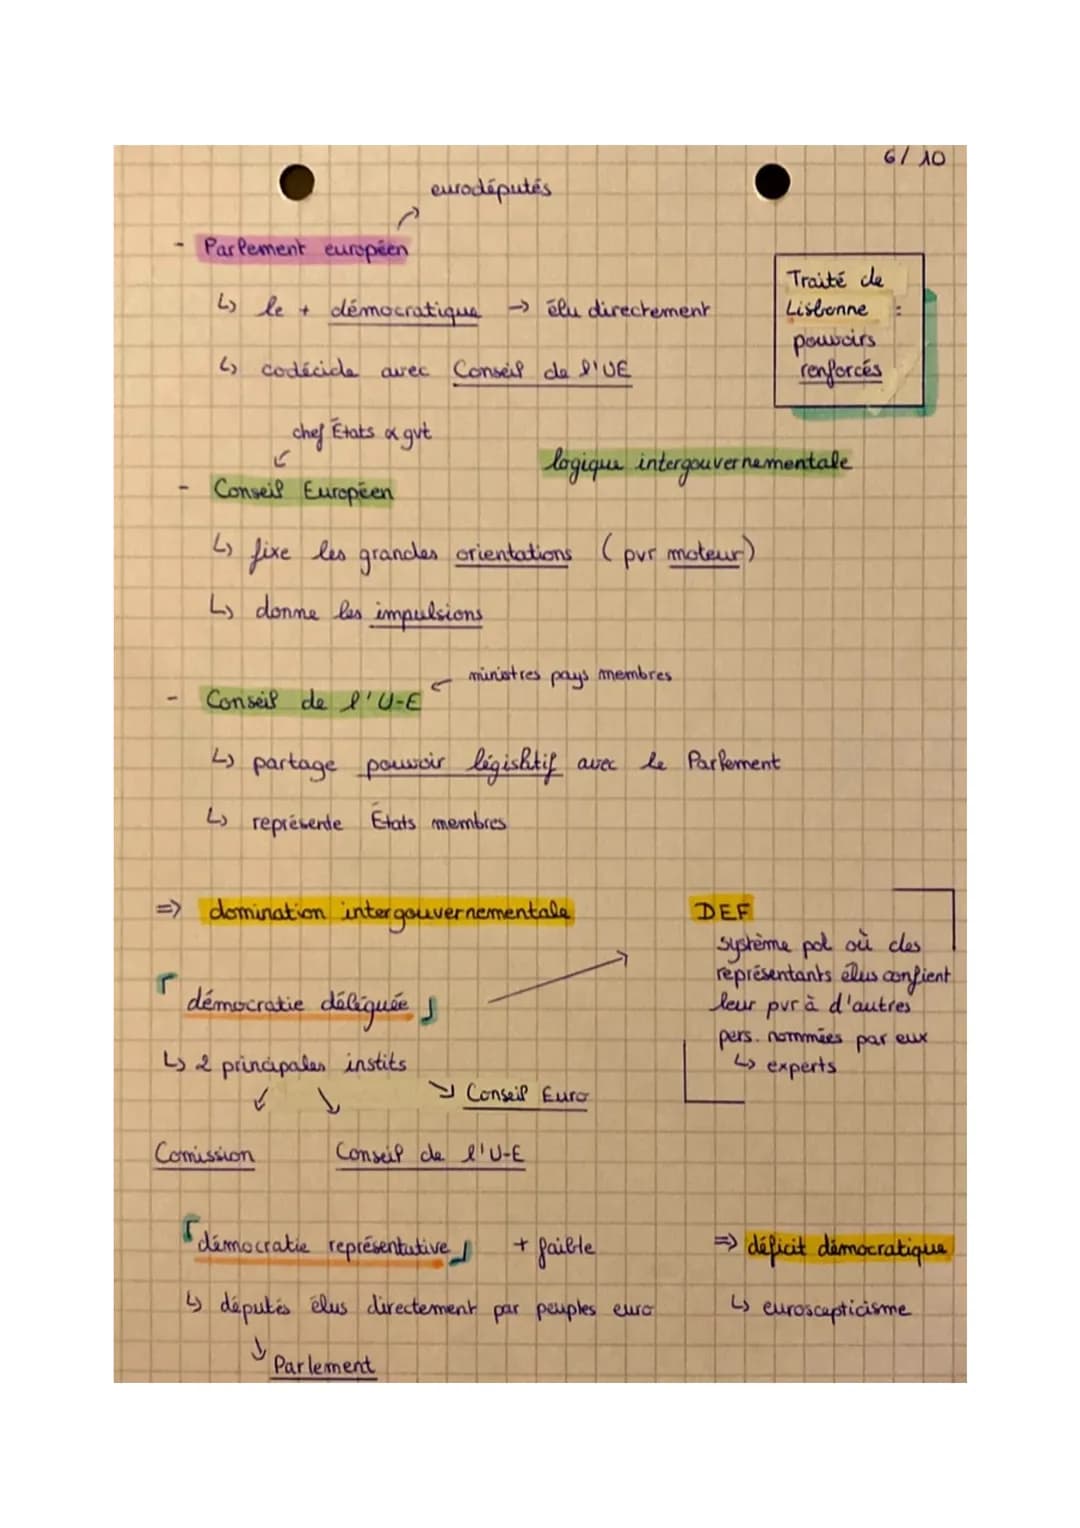 6/10
eurodéputés
- Parlement européen
↳ le + démocratique → élu directement
↳ codécide avec Conseil de l'UE
Traité de
Lisbonne :
pouvoirs
renforcés
chef États & gvt
logique intergouvernementale
- Conseil Européen
↳ fixe les grandes orientations (pvr moteur)
↳ donne les impulsions
ministres pays membres
- Conseil de l'U-E
↳ partage pouvoir législatif avec le Parlement
↳ représente États membres
=> domination intergouvernementale
DEF
système pol où des
représentants élus confient
leur pvr à d'autres
pers. nommées par eux
↳ experts
démocratie déléguée
↳ 2 principales instits
Conseil Euro
Comission
Conseil de l'U-E
démocratie représentative + faible => déficit démocratique
↳ députés élus directement par peuples euro
↳ euroscepticisme
Parlement